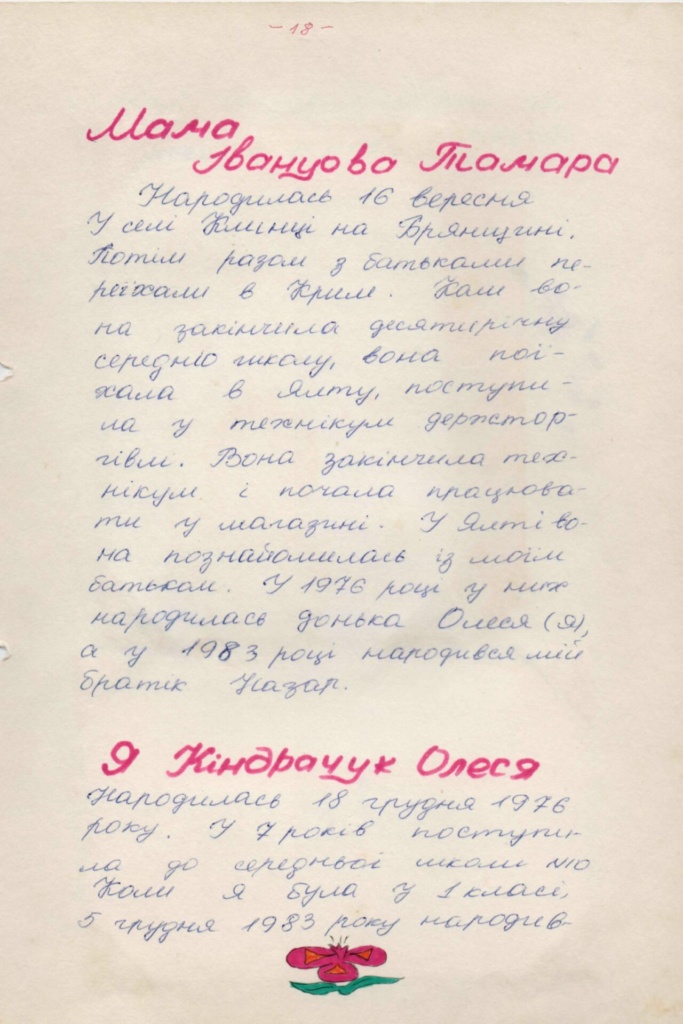 - 18 -
Мама
Іванцова Тамара
Народилась 16 вересня
У селі Клинці на Брянщині.
Потім разом з батьками пе-
реїхали в Крим. Коли во-
на закінчила десятирічну
середню школу, вона пої-
хала в Ялту, поступи-
ла у технікум держтор-
гівлі. Вона закінчила тех-
нікум і почала працюва-
ти у магазині. У Ялті во-
на познайомилась із моїм
батьком. У 1976 році у них
народилась донька Олеся (я),
а у 1983 році народився мій
братік Назар.
Я Кіндрачук Олеся
Народилась 18 грудня 1976
року. У 7 років поступи-
ла до середньої школи №10
Коли я була у 1 класі,
5 грудня 1983 року народив-